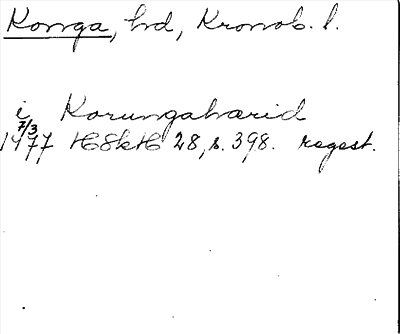 Konga, hd, Kronob. l.
i Korungahærid
7/3
1477 HSkH 28, s. 398. regest.